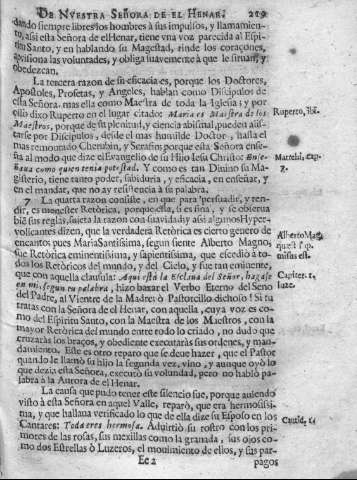 DE NVESTRA SEÑORA DE EL HENAR. 219
dando siempre libres los hombres à sus impulsos, y llamamien-
to, assi esta Señora de el Henar, tiene vna voz parecida al Espi-
ritu Santo, y en hablando su Magestad, rinde los coraçones,
aprisiona las voluntades, y obliga suavemente à que le sirvan, y
obedezcan.
La tercera razon de su eficacia es, porque los Doctores,
Apostoles, Profetas, y Angeles, hablan como Discipulos de
esta Señora, mas ella como Maestra de toda la Iglesia; y por
esso dixo Ruperto en el lugar citado: Maria es Maestra de los
Maestros, porque de su plenitud, y ciencia abismal, pueden
Ruperto, ibi.
tarse por Discipulos, desde el mas humilde Doctor, hasta el
mas remontado Cherubin, y Serafin; porque esta Señora ense-
ña al modo que dize el Evangelio de su Hijo Iesu Christo: En-
señava como quien tenia potestad. Y como es tan Divino su Ma-
gisterio, tiene tanto poder, sabiduria, y eficacia, en enseñar, y
en el mandar, que no ay resistencia à su palabra.
7 La quarta razon consiste, en que para persuadir, y ren-
dir, es menester Retorica, porque esta, si es fina, y se observa
biē sus reglas, sujeta la razon con suavidad; y assi algunos Hyper-
volicantes dizen, que la verdadera Retorica es cierto genero de
encantos pues Maria Santissima, segun siente Alberto Magno,
fue Retorica eminentissima, y sapientissima, que excediò à to-
dos los Retoricos del mundo, y del Cielo, y fue tan eminente,
que con aquella clausula: Aqui està la Esclava del Señor, hagase
en mi, segun tu palabra, hizo baxar el Verbo Eterno del Seno
del Padre, al Vientre de la Madre: ò Pastorcillo dichoso! Si tu
tratas con la Señora de el Henar, con aquella, cuya voz es co-
mo del Espiritu Santo, con la Maestra de los Maestros, con la
mayor Retorica del mundo entre todo lo criado, no dudo que
cruzaràs los braços, y obediente executaràs sus ordenes, y man-
damiento. Este es otro reparo que se deue hazer, que el Pastor
quando le llamò su hijo la segunda vez, vino, y aunque oyò lo
que dezia esta Señora, executò su voluntad, pero no hablò pa-
labra à la Aurora de el Henar.
La causa que pudo tener este silencio fue, porque auiendo
visto à esta Señora en aquel Valle, reparò, que era hermosissi-
ma, y que hallaua verificado lo que de ella dize su Esposo en los
Cantares: Toda eres hermosa. Advirtiò su rostro con los pri-
Cantic. 4.
mores de las rosas, sus mexillas como la granada, sus ojos co-
mo dos Estrellas ò Luzeros, el mouimiento de ellos, y sus par-
Ee 2
pagos